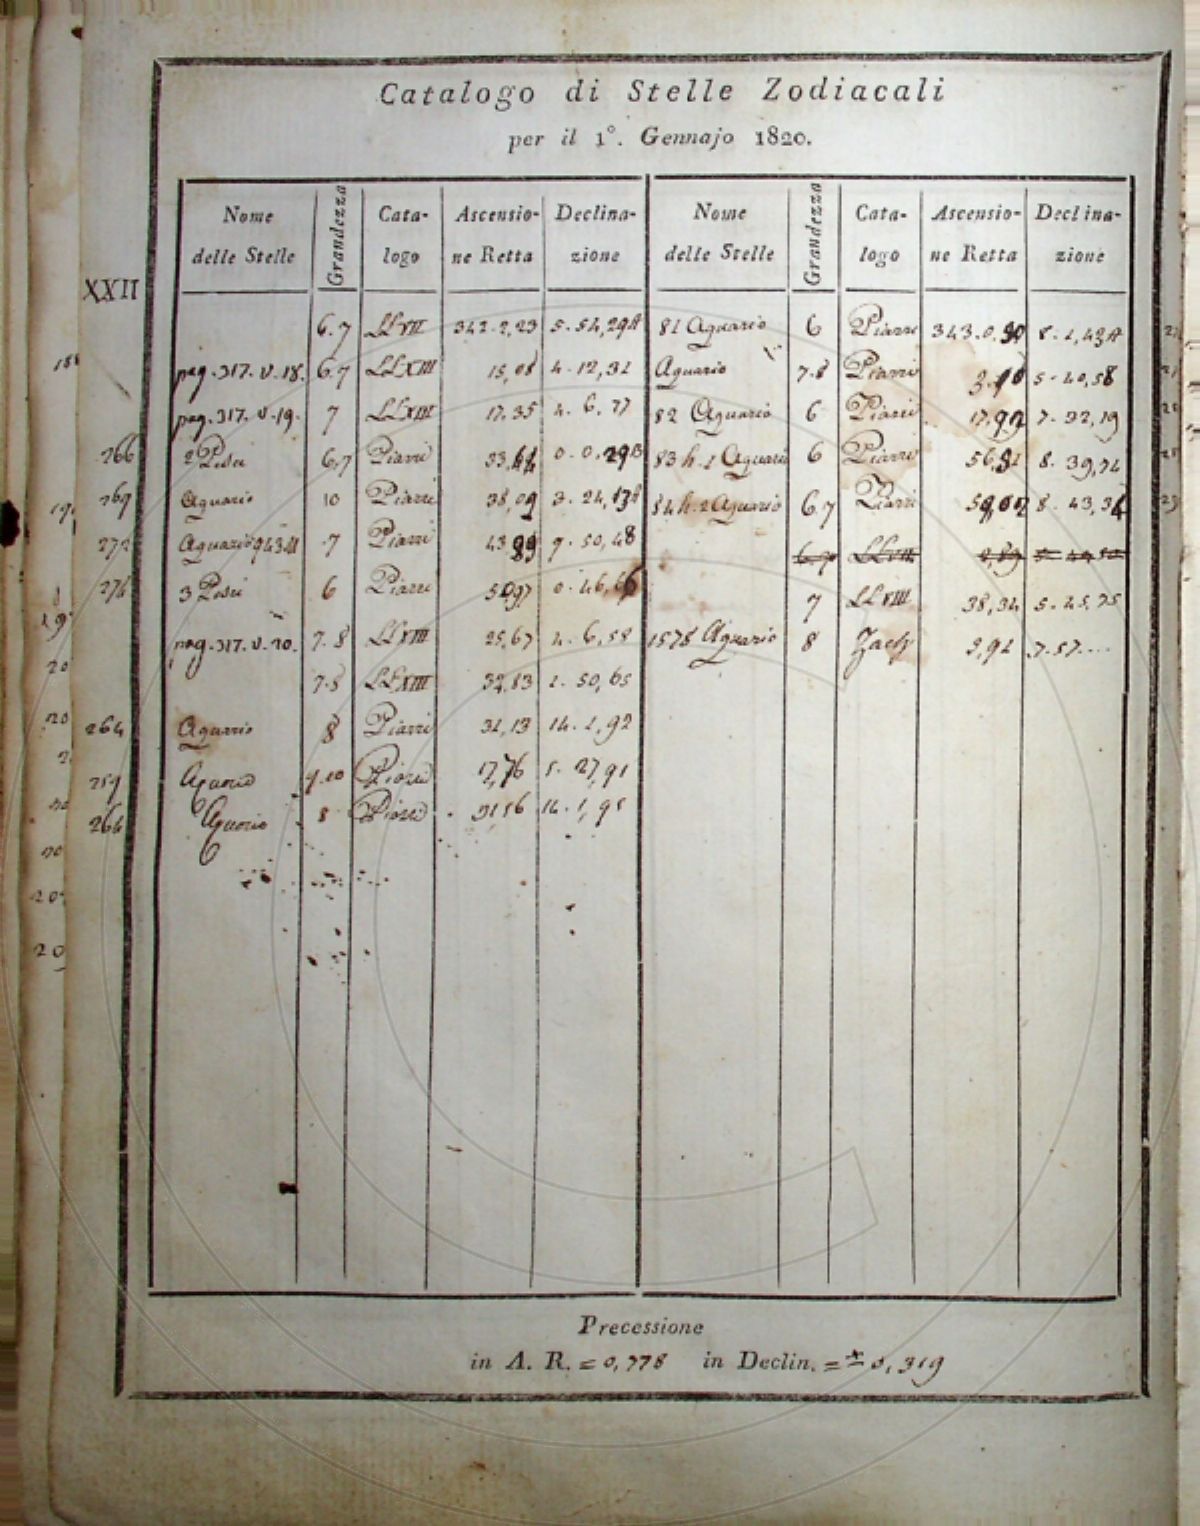 Catalogo di Stelle Zodiacali
per il 1°. Gennajo 1820.
Nome delle Stelle Grandezza Cata-logo Ascensio-ne Retta Declina-zione
XXII
6.7 LLVII 342.2,23 5.54,29A
pag.317.v.18. 6.7 LLXIII 15,08 4.12,32
pag.317.v.19. 7 LLXIII 17.35 4.6,77
266 2 Pesci 6.7 Piazzi 33,64 0.0,29B
269 Aquario 10 Piazzi 38,09 3.24,13A
272 Aquario 943M 7 Piazzi 43 89 9.50,48
274 3 Pesci 6 Piazzi 5097 0.46,66
pag.317.v.20. 7.8 LLXIII 25,67 4.6,58
7.8 LLXIII 32,83 2.50,65
264 Aquario 8 Piazzi 31,13 14.1,92
259 Aquario 9.10 Piazzi 17,76 5.27,91
264 Aquario 8 Piazzi 3156 14.1,95
Nome delle Stelle Grandezza Cata-logo Ascensio-ne Retta Declina-zione
81 Aquario 6 Piazzi 343.0,30 8.1,43A
Aquario 7.8 Piazzi 3.10 5.40,58
82 Aquario 6 Piazzi 17,92 7.32,19
83 h.1 Aquario 6 Piazzi 56,81 8.39,74
84 h.2 Aquario 6.7 Piazzi 8.43,34
6.7 LLVII 0,83
7 LLXIII 38,34 5.45,75
1578 Aquario 8 Zach 3,92 7.57....
Precessione
in A. R. = 0,778 in Declin. = ± 0,319